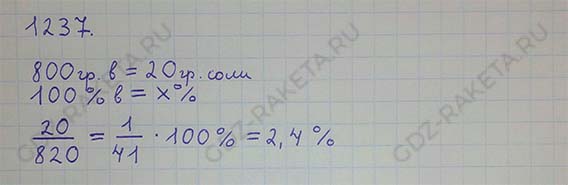 1237.
800гр. в = 20гр. соли
100 % в = x %
20/820 = 1/41 · 100 % = 2,4 %
GDZ-RAKETA.RU
GDZ-RAKETA.RU
GDZ-RAKETA.RU
GDZ-RAKETA.RU